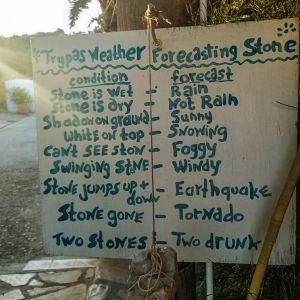 Trypas Weather Forecasting Stone
condition - forecast
Stone is wet - Rain
Stone is dry - Not Rain
Shadow on ground - Sunny
White on top - Snowing
Can't see ston - Foggy
Swinging stne - Windy
Stone jumps up +
down - Earthquake
Stone gone - Tornado
Two stones - Two drunk